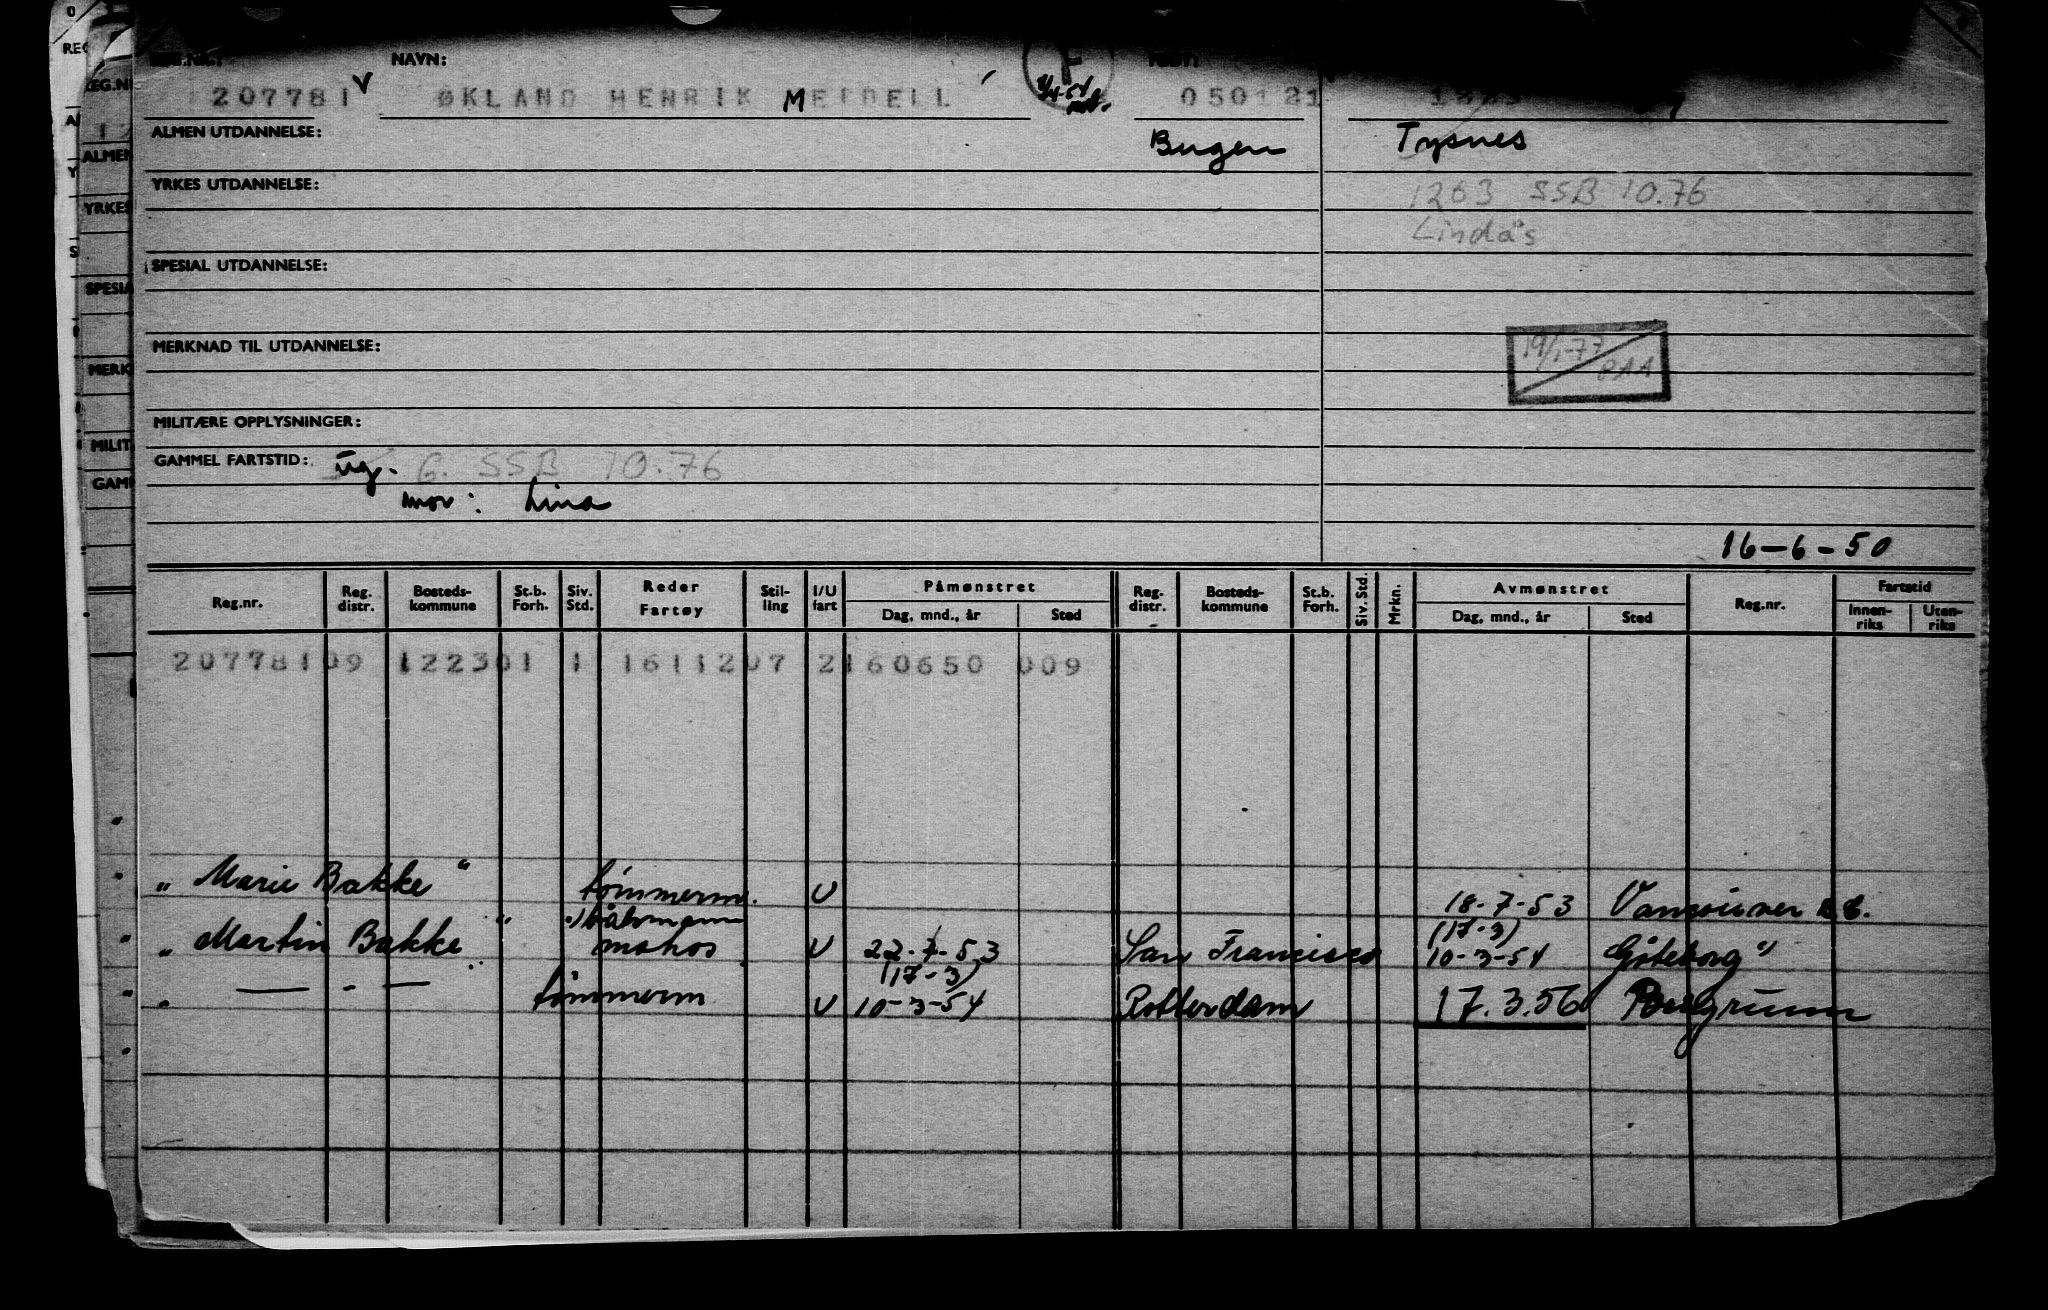 NAVN:
207781 V ØKLAND HENRIK MEIDELL 050121
ALMEN UTDANNELSE: Bugen Tysnes
YRKES UTDANNELSE: 1263 SSB 10.76
Lindås
SPESIAL UTDANNELSE:
MERKNAD TIL UTDANNELSE: 19/1-77
MILITÆRE OPPLYSNINGER:
GAMMEL FARTSTID: ug. G. SSB 10.76
mor: Lina
16-6-50
Reg.nr. Reg. distr. Bosteds-kommune St.b. Forh. Siv. Std. Reder Fartøy Stil-ling I/U fart Påmønstret Dag, mnd., år Sted Reg. distr. Bosteds-kommune St.b. Forh. Siv. Std. Mrkn. Avmønstret Dag, mnd., år Sted Reg.nr. Fartstid Innen-riks Uten-riks
20778109 122301 1 1611207 2160650 009
" Marie Bakke " tømmerm. U 18-7-53 Vancouver B.C.
" Martin Bakke " matros U 22-7-53 San Francisco (17-3) 10-3-54 Göteborg
" — - — tømmerm U (17-3) 10-3-54 Rotterdam 17.3.56 Porsgrunn